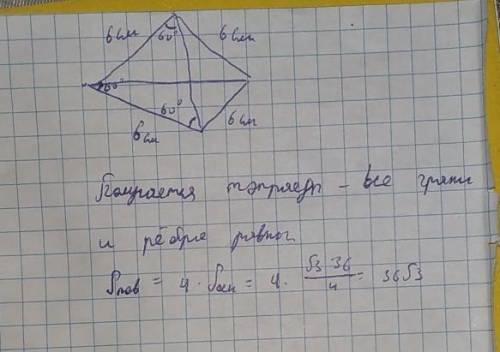 6 см 60° 6 см
60° 60°
6 см 6 см
Получается тэтраедр – все грани
и рёбра равны
Sпов = 4 · Sосн = 4 · √3·36/4 = 36√3